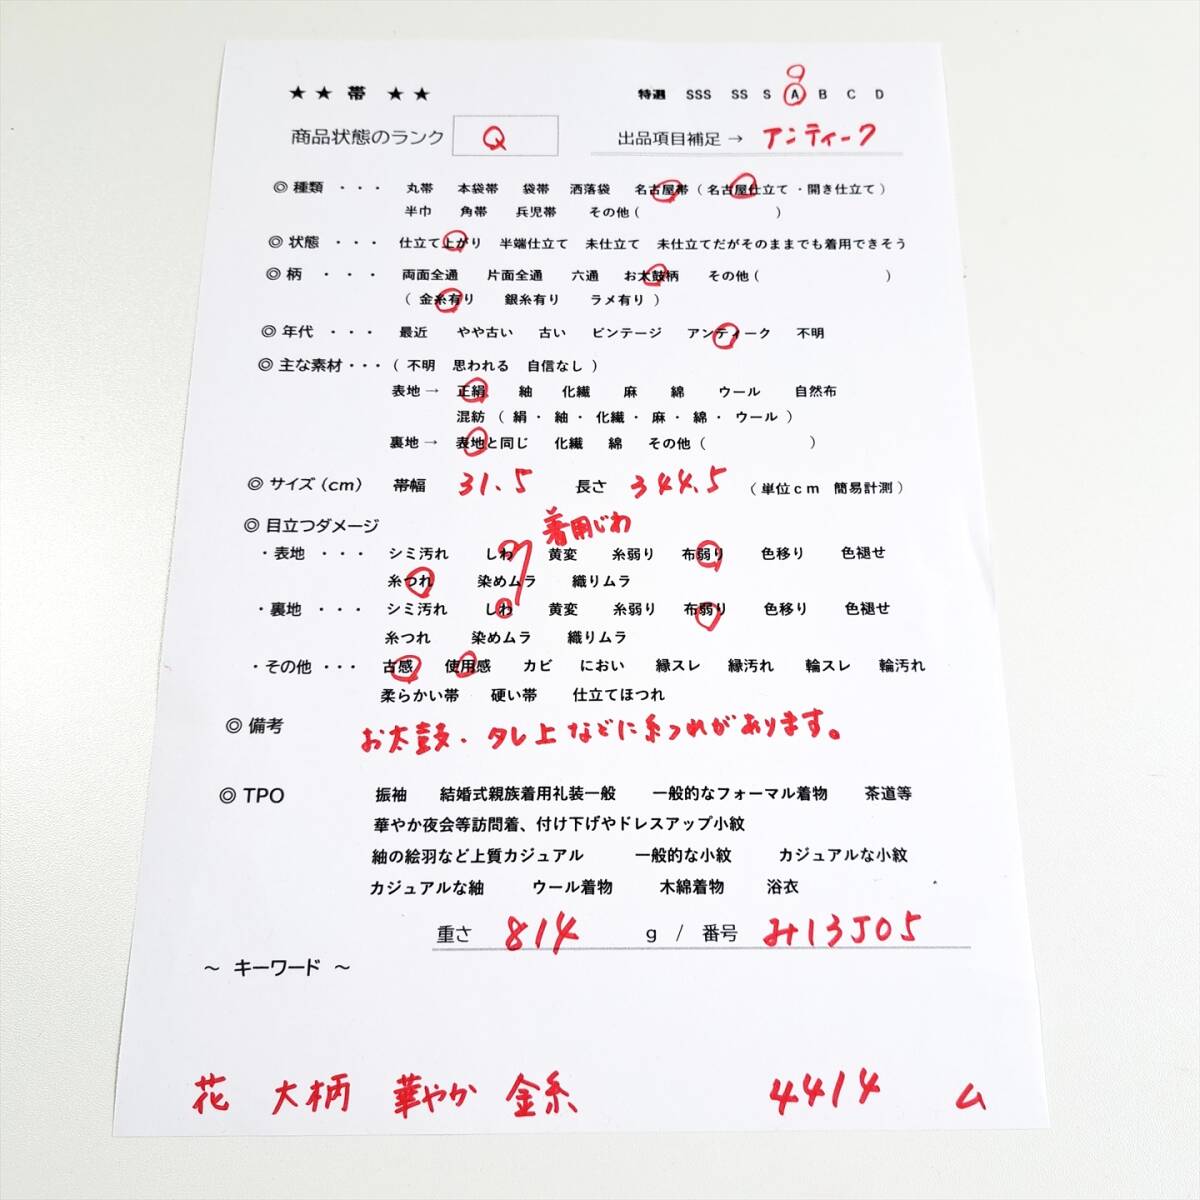 ★ ★ 帯 ★ ★ 特選 SSS SS S A B C D
商品状態のランク Q 出品項目補足 → アンティーク
◎ 種類 ・・・ 丸帯 本袋帯 袋帯 洒落袋 名古屋帯 ( 名古屋仕立て ・ 開き仕立て )
半巾 角帯 兵児帯 その他 ( )
◎ 状態 ・・・ 仕立て上がり 半端仕立て 未仕立て 未仕立てだがそのままでも着用できそう
◎ 柄 ・・・ 両面全通 片面全通 六通 お太鼓柄 その他 ( )
( 金糸有り 銀糸有り ラメ有り )
◎ 年代 ・・・ 最近 やや古い 古い ビンテージ アンティーク 不明
◎ 主な素材 ・・・ ( 不明 思われる 自信なし )
表地 → 正絹 紬 化繊 麻 綿 ウール 自然布
混紡 ( 絹 ・ 紬 ・ 化繊 ・ 麻 ・ 綿 ・ ウール )
裏地 → 表地と同じ 化繊 綿 その他 ( )
◎ サイズ (cm) 帯幅 31.5 長さ 344.5 ( 単位cm 簡易計測 )
◎ 目立つダメージ 着用じわ
・表地 ・・・ シミ汚れ しわ 黄変 糸弱り 布弱り 色移り 色褪せ
糸つれ 染めムラ 織りムラ
・裏地 ・・・ シミ汚れ しわ 黄変 糸弱り 布弱り 色移り 色褪せ
糸つれ 染めムラ 織りムラ
・その他 ・・・ 古感 使用感 カビ におい 縁スレ 縁汚れ 輪スレ 輪汚れ
柔らかい帯 硬い帯 仕立てほつれ
◎ 備考 お太鼓・タレ上などに糸つれがあります。
◎ TPO 振袖 結婚式親族着用礼装一般 一般的なフォーマル着物 茶道等
華やか夜会等訪問着、付け下げやドレスアップ小紋
紬の絵羽など上質カジュアル 一般的な小紋 カジュアルな小紋
カジュアルな紬 ウール着物 木綿着物 浴衣
重さ 814 g / 番号 み13J05
~ キーワード ~
花 大柄 華やか 金糸 4414 ム